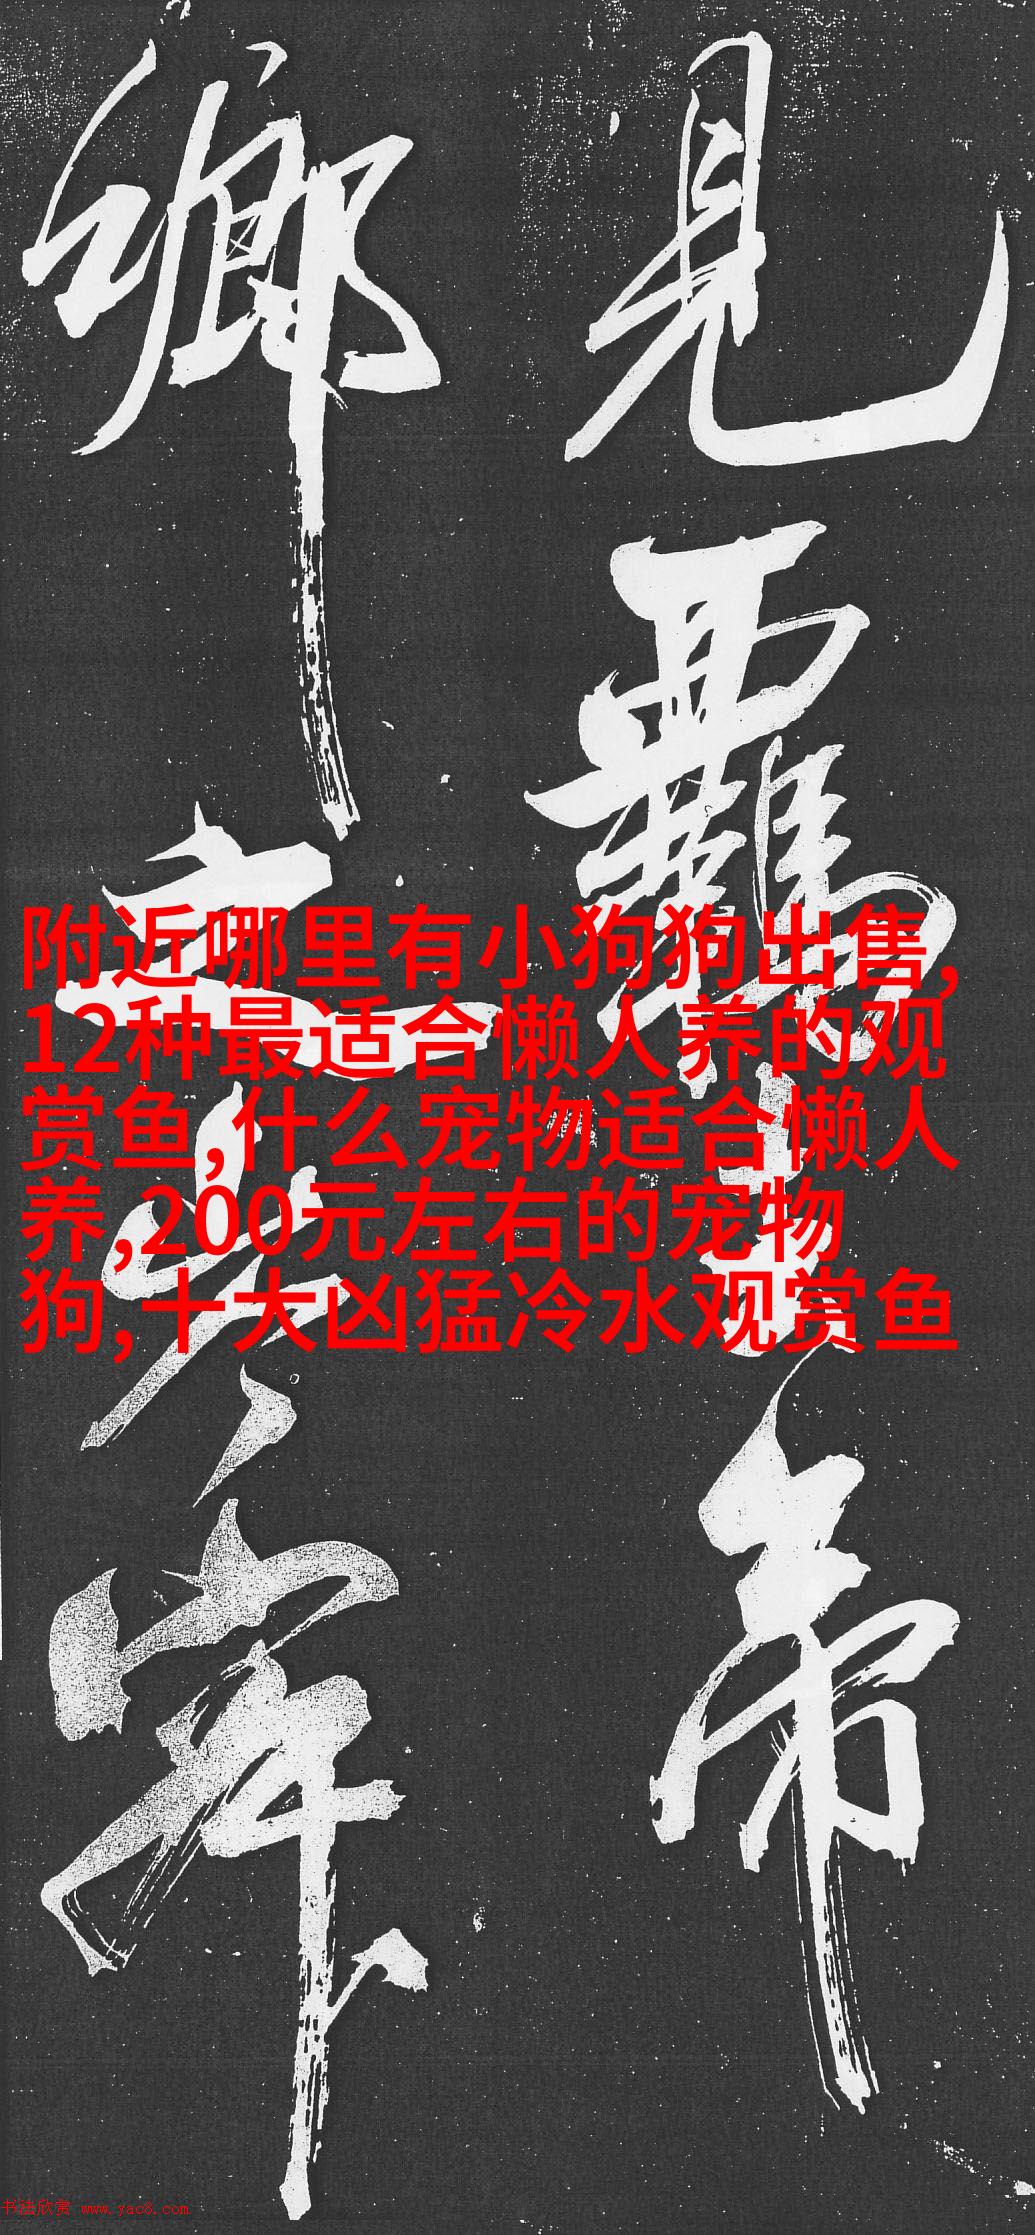 見
帝
鄉之
附近哪里有小狗狗出售,
12种最适合懒人养的观
赏鱼,什么宠物适合懒人
养,200元左右的宠物
狗,十大凶猛冷水观赏鱼
书法欣赏 www.yac8.com